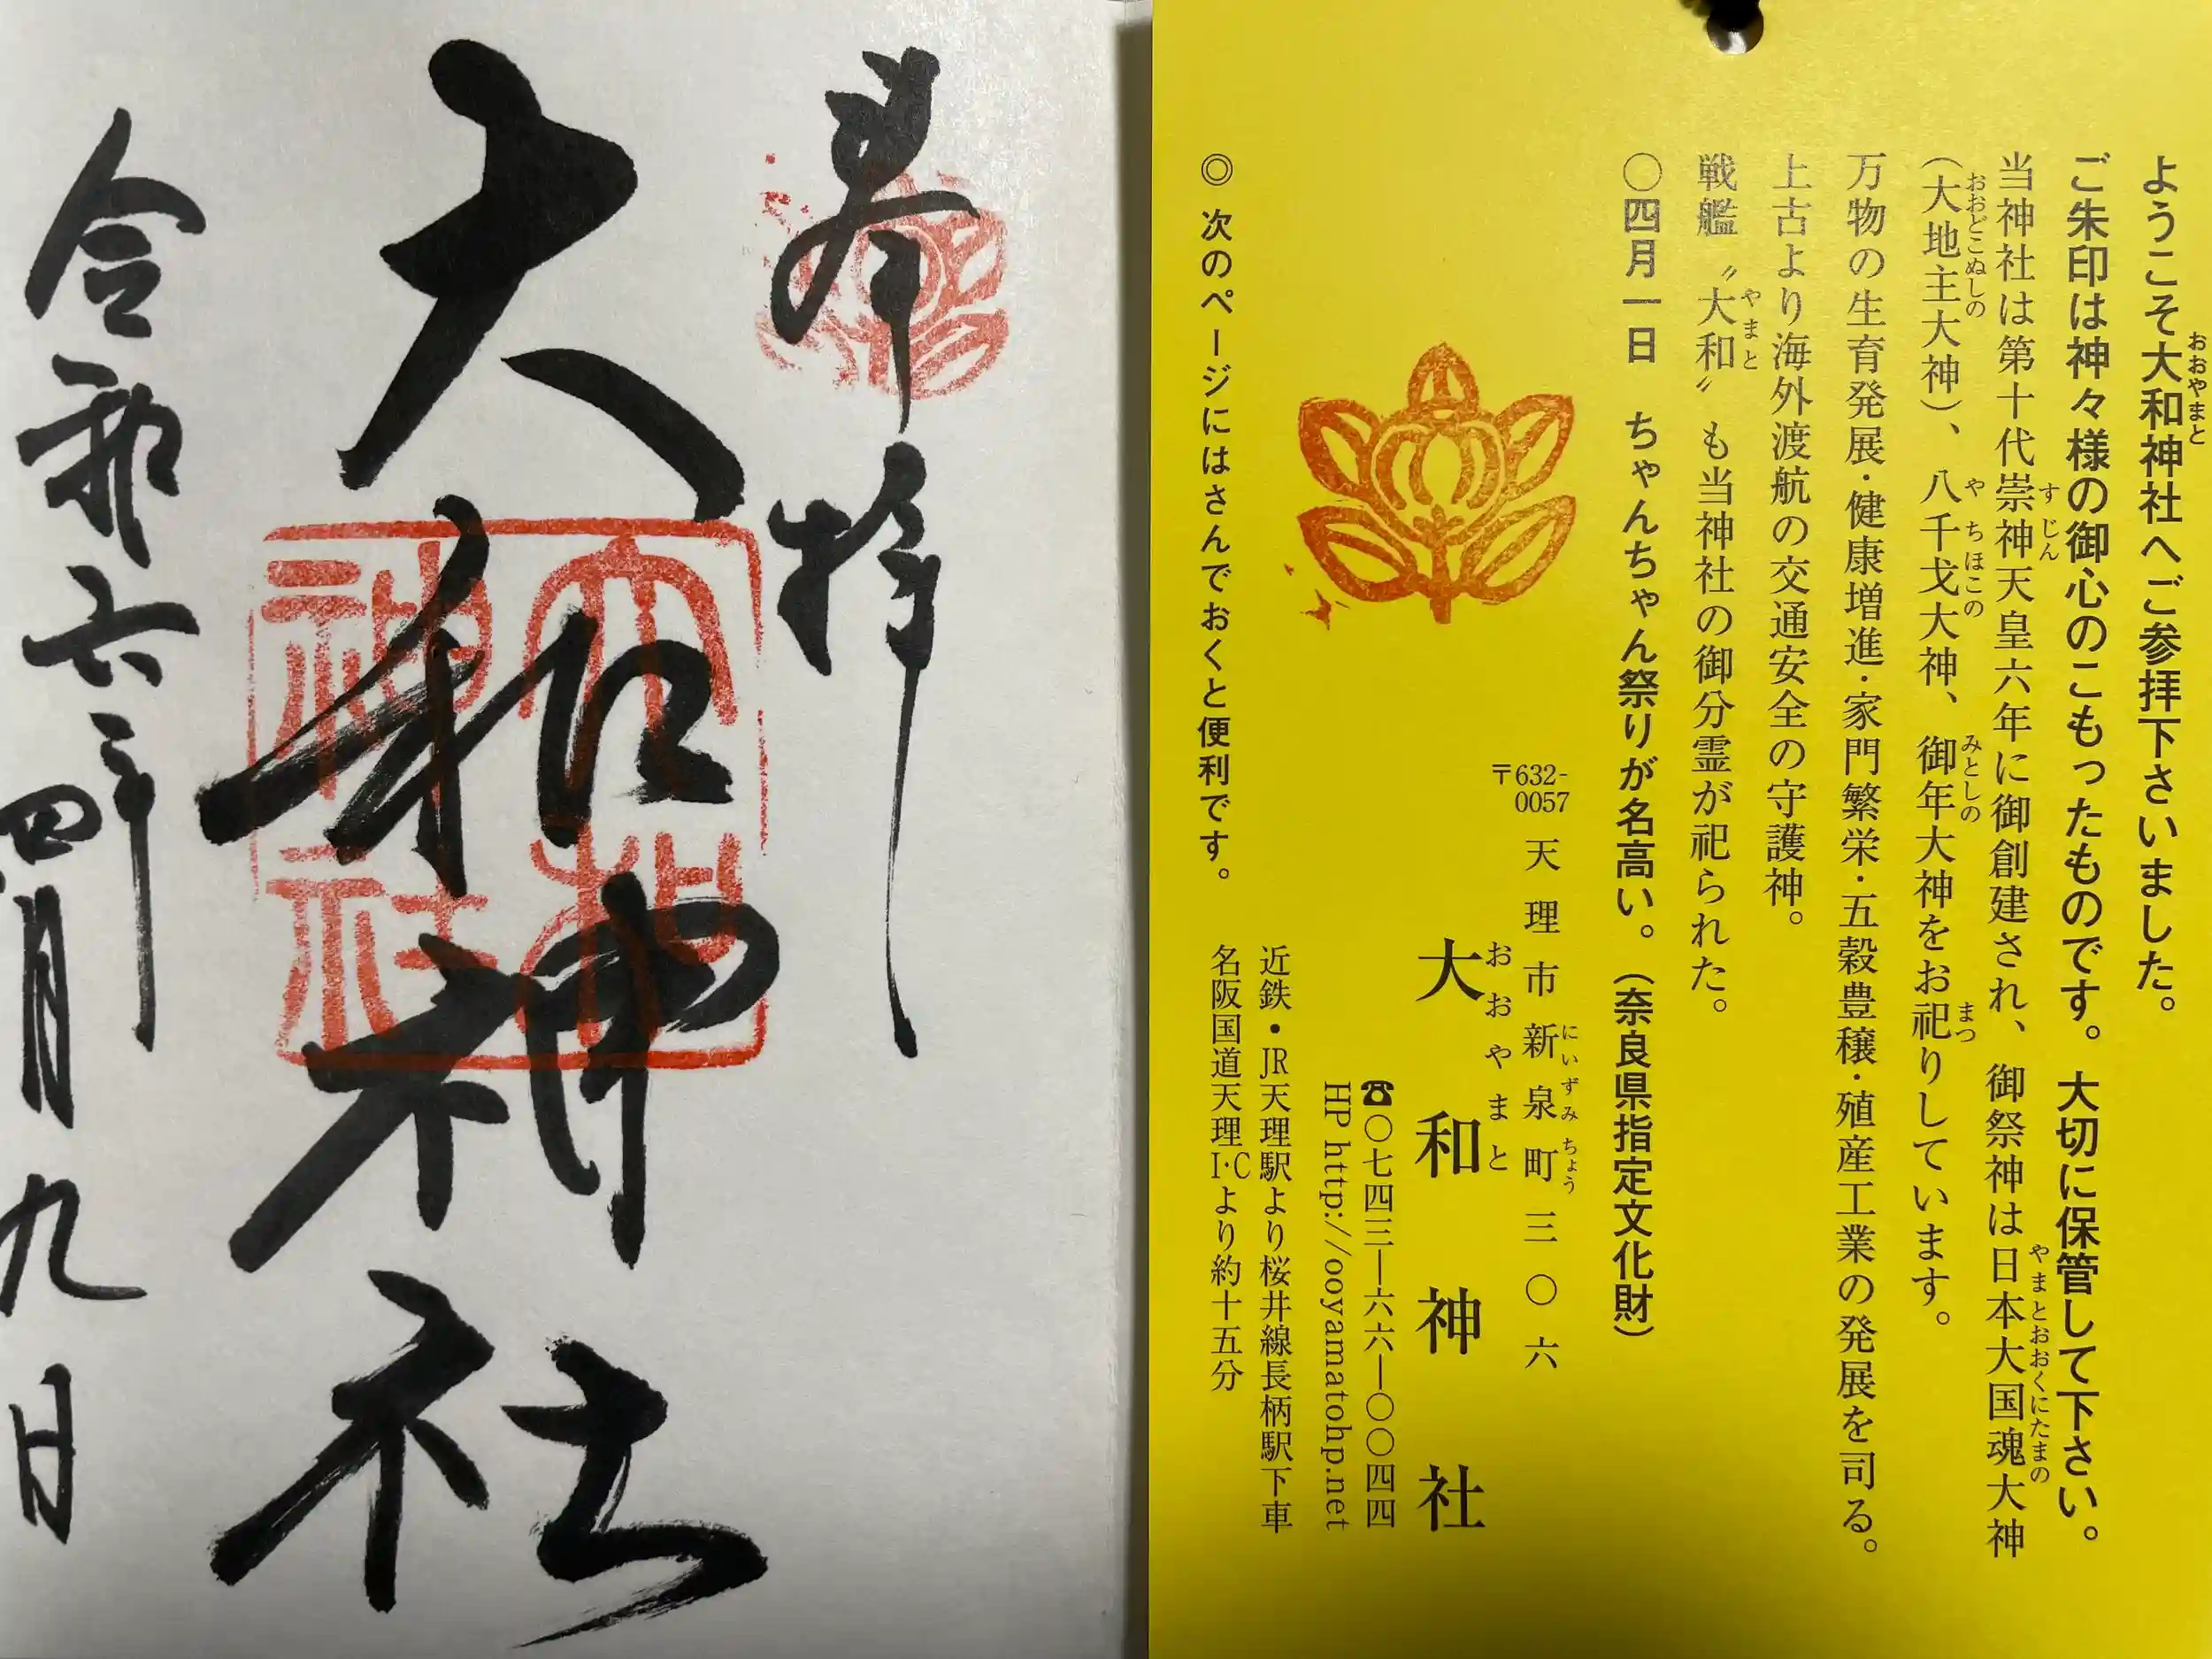 ようこそ大和神社へご参拝下さいました。
おおやまと
ご朱印は神々様の御心のこもったものです。大切に保管して下さい。
当神社は第十代崇神天皇六年に御創建され、御祭神は日本大国魂大神
すじん
やまとおおくにたまの
(大地主大神)、八千戈大神、御年大神をお祀りしています。
おおどこぬしの
やちほこの
みとしの
まつ
万物の生育発展・健康増進・家門繁栄・五穀豊穣・殖産工業の発展を司る。
上古より海外渡航の交通安全の守護神。
戦艦〝大和〟も当神社の御分霊が祀られた。
やまと
〇四月一日 ちゃんちゃん祭りが名高い。(奈良県指定文化財)
〒632-0057 天理市新泉町三〇六
にいずみちょう
大和神社
おおやまと
☎〇七四三―六六―〇〇四四
HP http://ooyamatohp.net
近鉄・JR天理駅より桜井線長柄駅下車
名阪国道天理I・Cより約十五分
◎ 次のページにはさんでおくと便利です。
奉拝
大和神社
大和
神社
令和六年四月九日